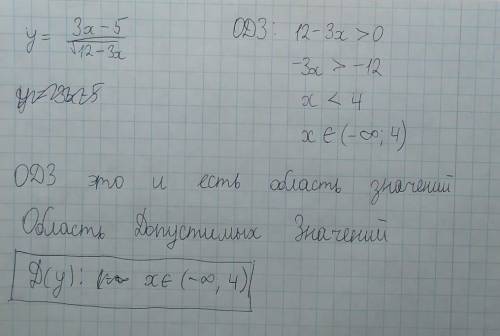 y = (3x - 5)/√(12 - 3x)
ОДЗ: 12 - 3x > 0
-3x > -12
x < 4
x ∈ (-∞; 4)
ОДЗ это и есть область значений
Область Допустимых Значений
D(y): x ∈ (-∞, 4)